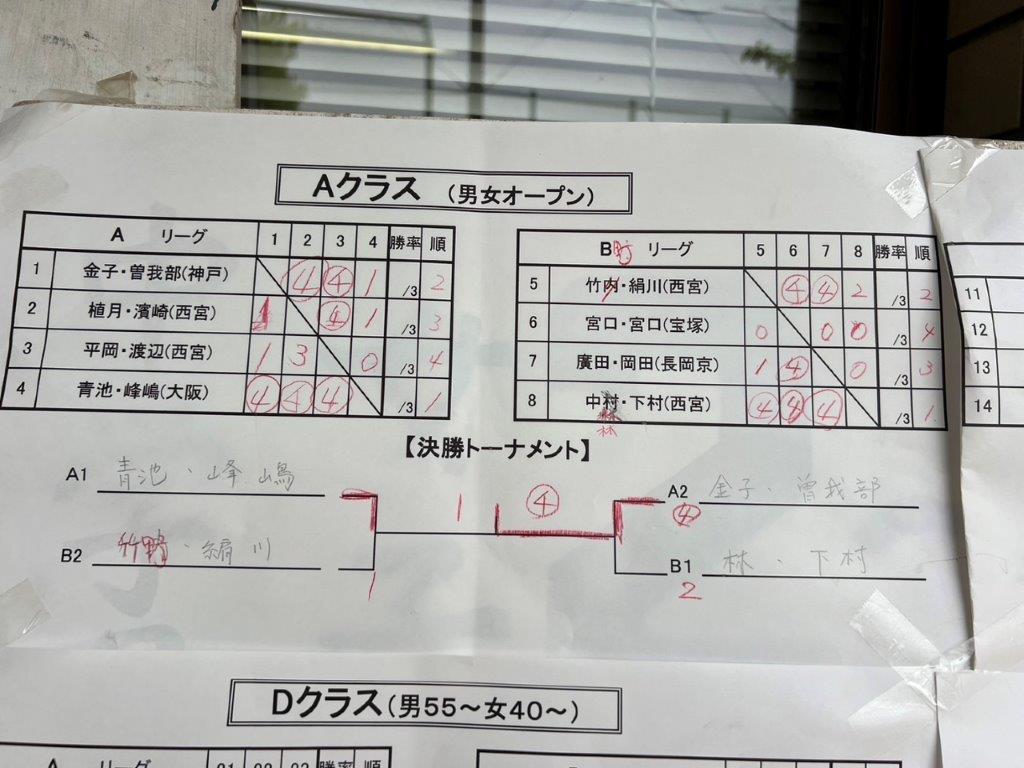 Aクラス （男女オープン）
A リーグ 1 2 3 4 勝率 順
1 金子・曽我部(神戸) ④ ④ 1 /3 2
2 植月・濱崎(西宮) 1 ④ 1 /3 3
3 平岡・渡辺(西宮) 1 3 0 /3 4
4 青池・峰嶋(大阪) ④ ④ ④ /3 1
B リーグ 5 6 7 8 勝率 順
5 竹内・絹川(西宮) ④ ④ 2 /3 2
6 宮口・宮口(宝塚) 0 0 0 /3 4
7 廣田・岡田(長岡京) 1 ④ 0 /3 3
8 中村・下村(西宮) ④ ④ ④ /3 1
林
11
12
13
14
【決勝トーナメント】
A1 青池・峰嶋
1 ④
A2 金子・曽我部
④
B2 竹 ・絹川
1
B1 林・下村
2
Dクラス（男55～女40～）
A リーグ 21 22 23 勝率 順